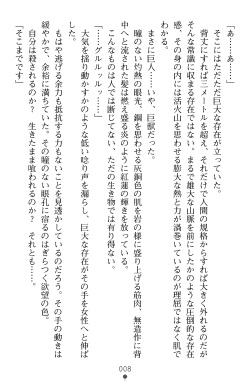 「あ……あ……」
そこにはただただ巨大な存在が立っていた。
背丈にすれば三メートルを超え、それだけで人間の規格からすれば大きく外れるのだが
そんな常識に収まる存在ではない。まるで雄大な山脈を前にしたかのような圧倒的な存在
感。その身の内には活火山を思わせる膨大な熱と力が渦巻いているのが理屈ではなく肌で
まさに巨人……いや、巨獣だった。
瞳のない灼熱の眼光、鋼を思わせる灰銅色の肌を岩の様に盛り上げる筋肉、無造作に背
中へと流された髪は燃え盛る炎のように紅蓮の輝きを放っている。
こんなものは人では断じてない、ただの生き物では有り得ない。
『グルルッ……』
大気を揺り動かすかのような低い唸り声を漏らし、巨大な存在がその手を女性へと伸ば
す。
もはや逃げる余力も抵抗する力もないことを見透かしているのだろう。その手の動きは
緩やかで、余裕に満ちていた。その瞳のない眼孔に宿るのはぎらつく欲望の色。
自分は殺されるのか？ 生きたまま喰われるのか？ それとも……。
「そこまでです」
008